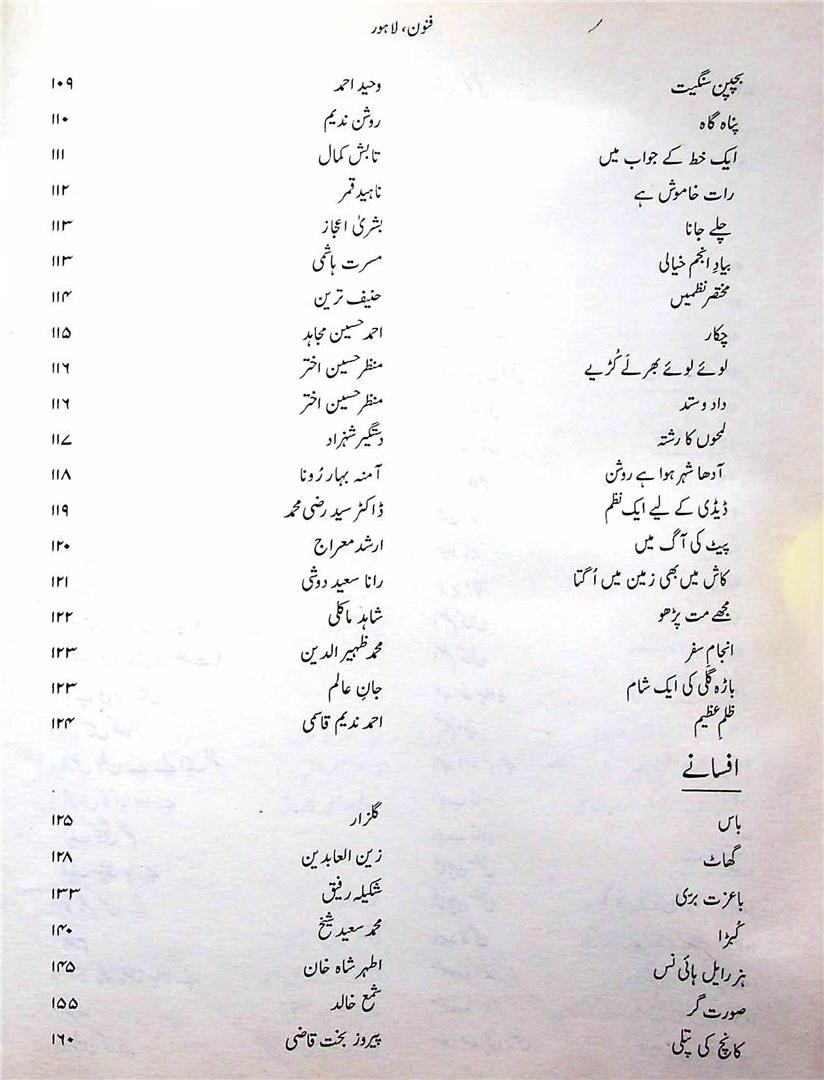 فنون، لاہور
بچپن سنگیت وحید احمد ۱۰۹
پناہ گاہ روشن ندیم ۱۱۰
ایک خط کے جواب میں تابش کمال ۱۱۱
رات خاموش ہے ناہید قمر ۱۱۲
چلے جانا بشریٰ اعجاز ۱۱۳
بیادِ انجم خیالی مسرت ہاشمی ۱۱۳
مختصر نظمیں حنیف ترین ۱۱۴
چکار احمد حسین مجاہد ۱۱۵
لوئے لوئے بھر لَے کُڑیے منظر حسین اختر ۱۱۶
داد و ستد منظر حسین اختر ۱۱۶
لمحوں کا رشتہ دستگیر شہزاد ۱۱۷
آدھا شہر ہوا ہے روشن آمنہ بہار رُونا ۱۱۸
ڈیڈی کے لیے ایک نظم ڈاکٹر سید رضی محمد ۱۱۹
پیٹ کی آگ میں ارشد معراج ۱۲۰
کاش میں بھی زمین میں اُگتا رانا سعید دوشی ۱۲۱
مجھے مت پڑھو شاہد ماکلی ۱۲۲
انجامِ سفر محمد ظہیر الدین ۱۲۳
باڑہ گلی کی ایک شام جانِ عالم ۱۲۳
ظلمِ عظیم احمد ندیم قاسمی ۱۲۴
افسانے
باس گلزار ۱۲۵
گھاٹ زین العابدین ۱۲۸
باعزت بری شکیلہ رفیق ۱۳۳
کُبڑا محمد سعید شیخ ۱۴۰
ہز رایل ہائی نس اطہر شاہ خان ۱۴۵
صورت گر شمع خالد ۱۵۵
کانچ کی پتلی پیروز بخت قاضی ۱۶۰